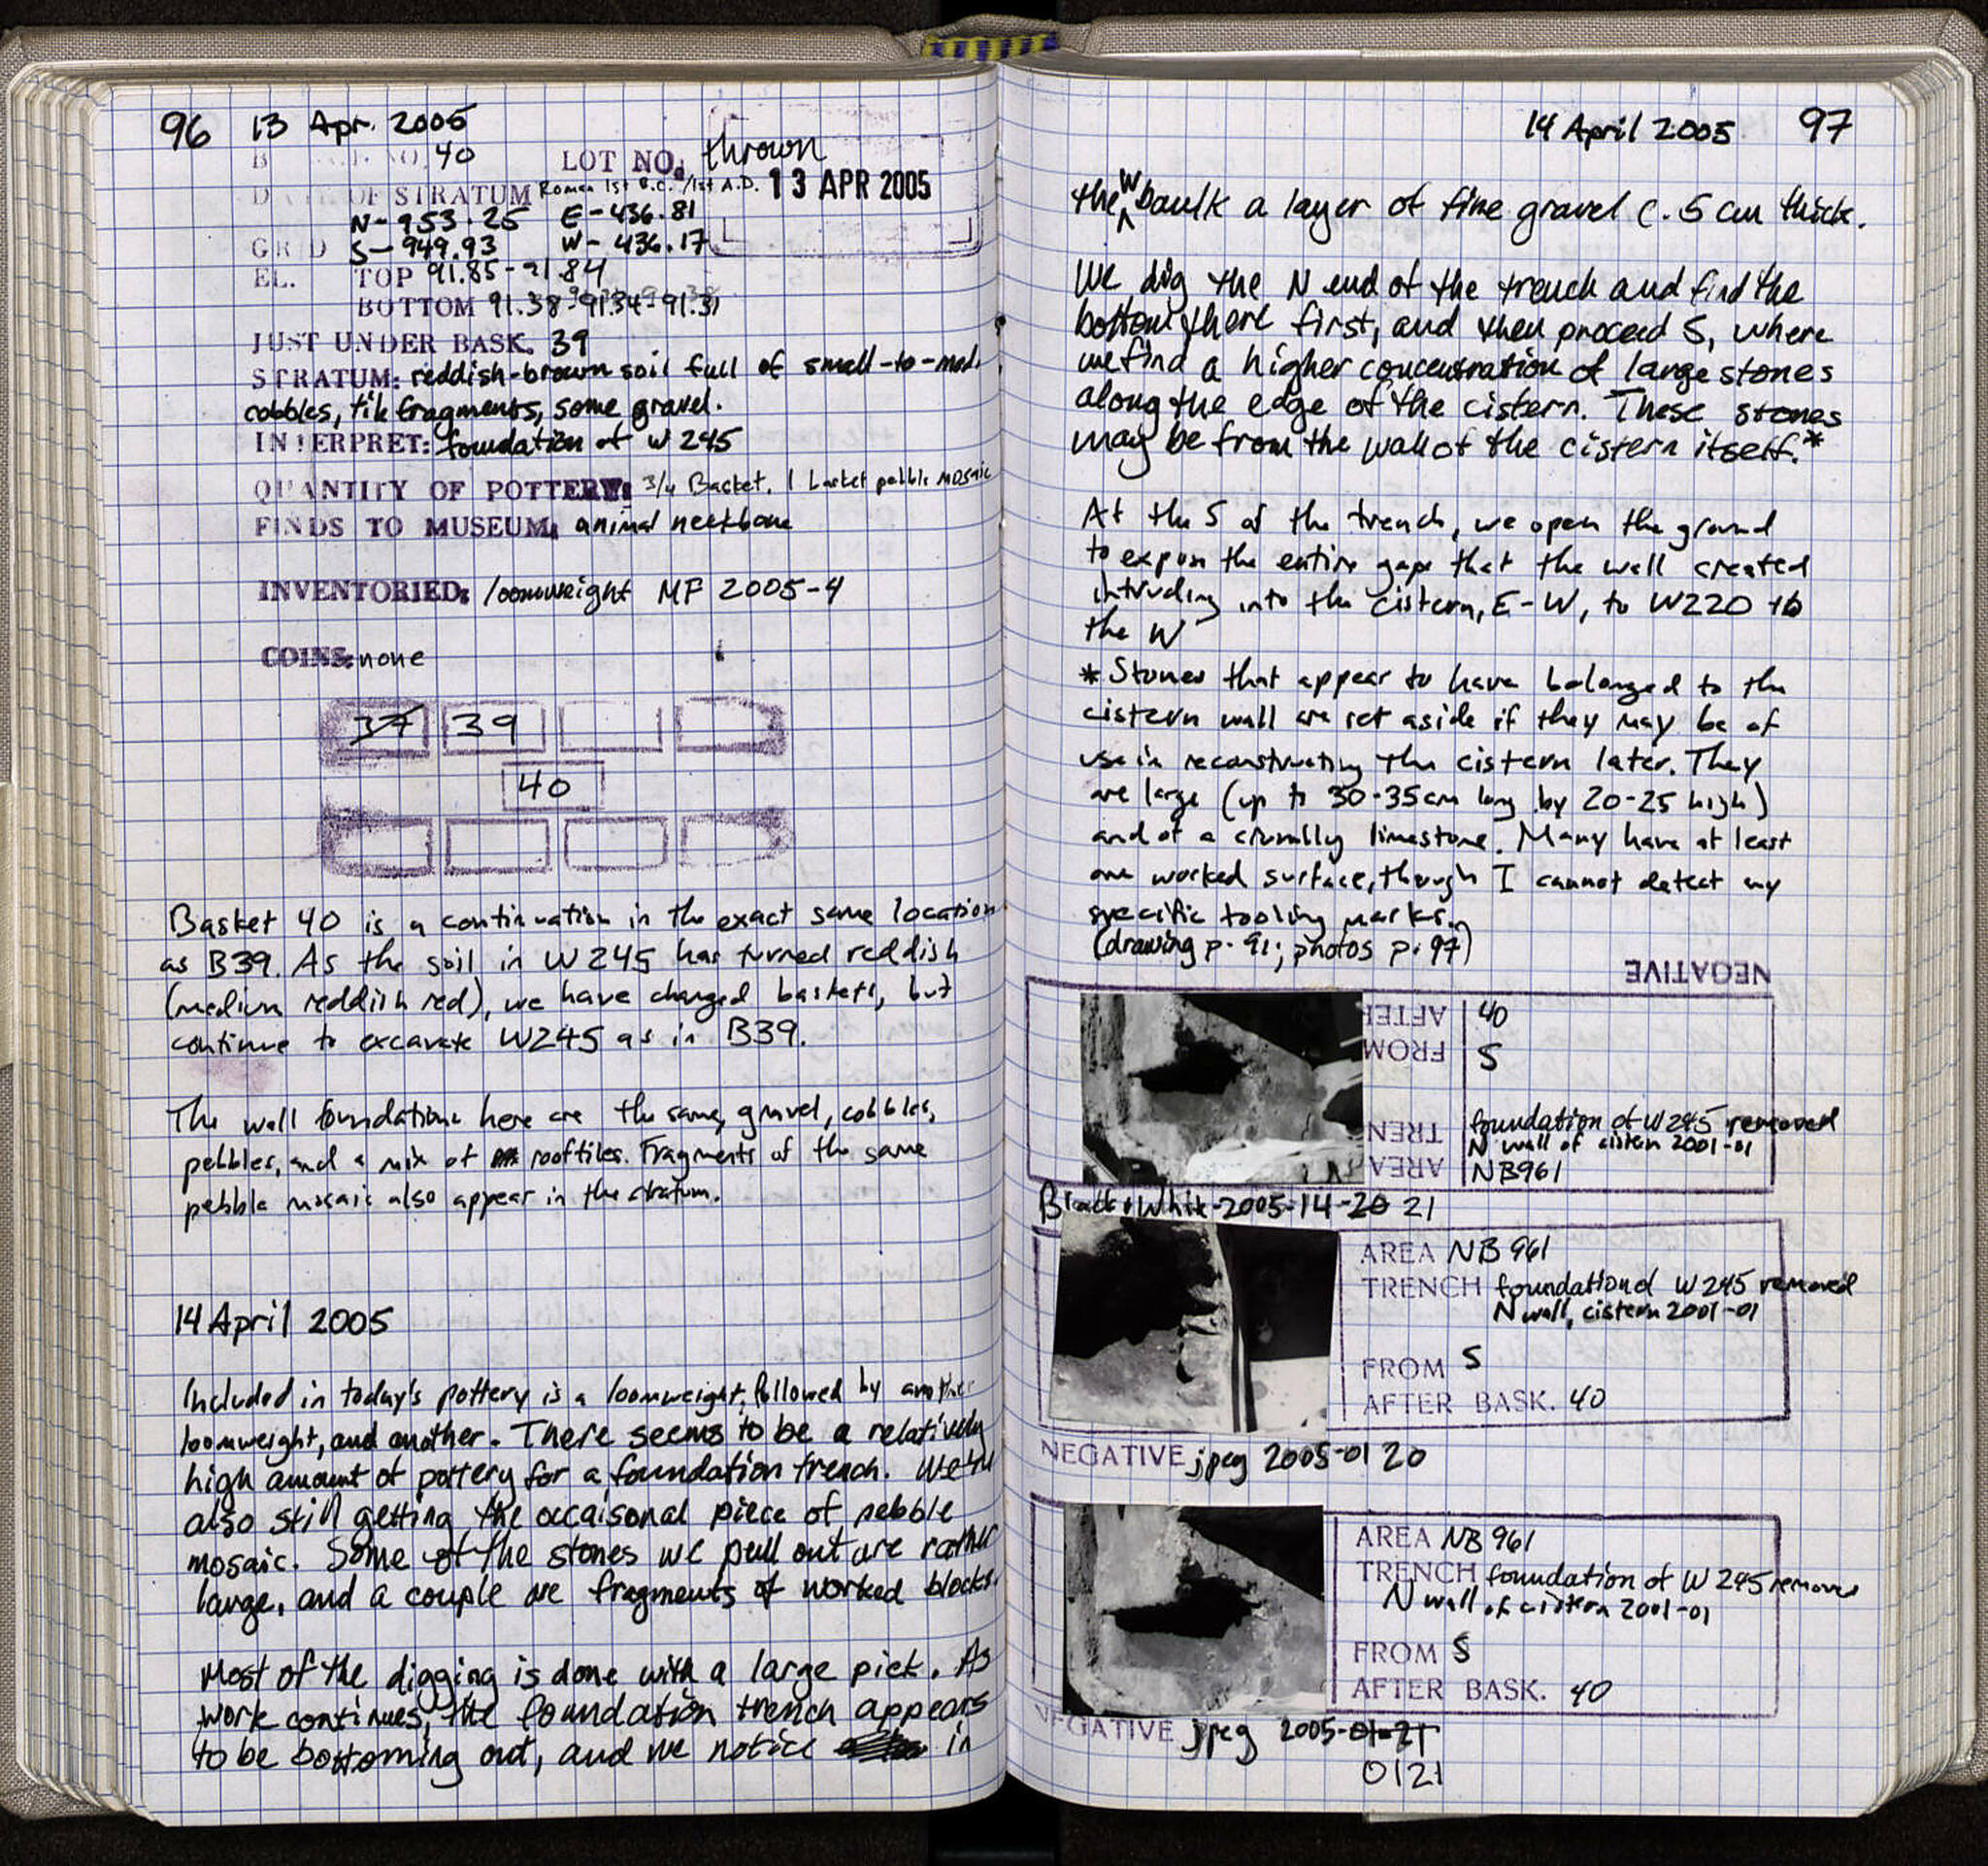 96 13 Apr. 2005
B NO. 40 LOT NO. thrown
D OF STRATUM Roman 1st B.C./1st A.D. 13 APR 2005
N-953.25 E-436.81
GRID S-949.93 W-436.17
EL. TOP 91.85-91.84
BOTTOM 91.38-91.34-91.31
JUST UNDER BASK. 39
STRATUM: reddish-brown soil full of small-to-med.
cobbles, tile fragments, some gravel.
INTERPRET: foundation of W245
QUANTITY OF POTTERY: 3/4 Basket. 1 basket pebble mosaic
FINDS TO MUSEUM: animal neckbone
INVENTORIED: loomweight MF 2005-4
COINS: none
37 39
40
Basket 40 is a continuation in the exact same location
as B39. As the soil in W245 has turned reddish
(medium reddish red), we have changed baskets, but
continue to excavate W245 as in B39.
The wall foundations here are the same, gravel, cobbles,
pebbles, and a mix of rooftiles. Fragments of the same
pebble mosaic also appear in the stratum.
14 April 2005
Included in today's pottery is a loomweight, followed by another
loomweight, and another. There seems to be a relatively
high amount of pottery for a foundation trench. We're
also still getting the occaisonal piece of pebble
mosaic. Some of the stones we pull out are rather
large, and a couple are fragments of worked blocks.
Most of the digging is done with a large pick. As
work continues, the foundation trench appears
to be bottoming out, and we notice in
14 April 2005 97
the W baulk a layer of fine gravel c. 5 cm thick.
We dig the N end of the trench and find the
bottom there first, and then proceed S, where
we find a higher concentration of large stones
along the edge of the cistern. These stones
may be from the wall of the cistern itself.*
At the S of the trench, we open the ground
to expose the entire gape that the wall created
intruding into the cistern, E-W, to W220 to
the W
* Stones that appear to have belonged to the
cistern wall are set aside if they may be of
use in reconstructing the cistern later. They
are large (up to 30-35cm long by 20-25 high)
and of a crumbly limestone. Many have at least
one worked surface, though I cannot detect any
specific tooling marks.
(drawing p. 91; photos p. 97)
NEGATIVE
AFTER 40
FROM S
TREN foundation of W245 removed
N wall of cistern 2001-01
AREA NB961
Black & White-2005-14-20 21
AREA NB 961
TRENCH foundation of W245 removed
N wall, cistern 2001-01
FROM S
AFTER BASK. 40
NEGATIVE jpeg 2005-0120
AREA NB 961
TRENCH foundation of W245 removed
N wall of cistern 2001-01
FROM S
AFTER BASK. 40
NEGATIVE jpeg 2005-01-21
0121